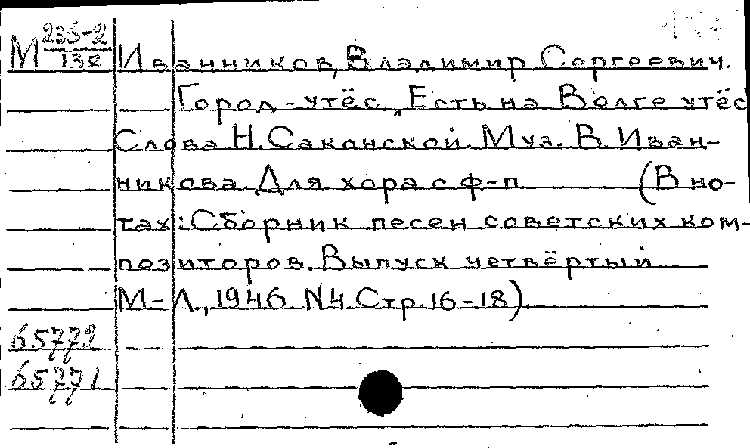 М 235-2/138 Иванников, Владимир Сергеевич.
Город-утёс „Есть на Волге утёс
Слова Н. Саконской. Муз. В. Иван-
никова. Для хора с ф-п (В но-
тах: Сборник песен советских ком-
позиторов. Выпуск четвёртый
М-Л., 1946 N4 Стр. 16-18)
65772
65771